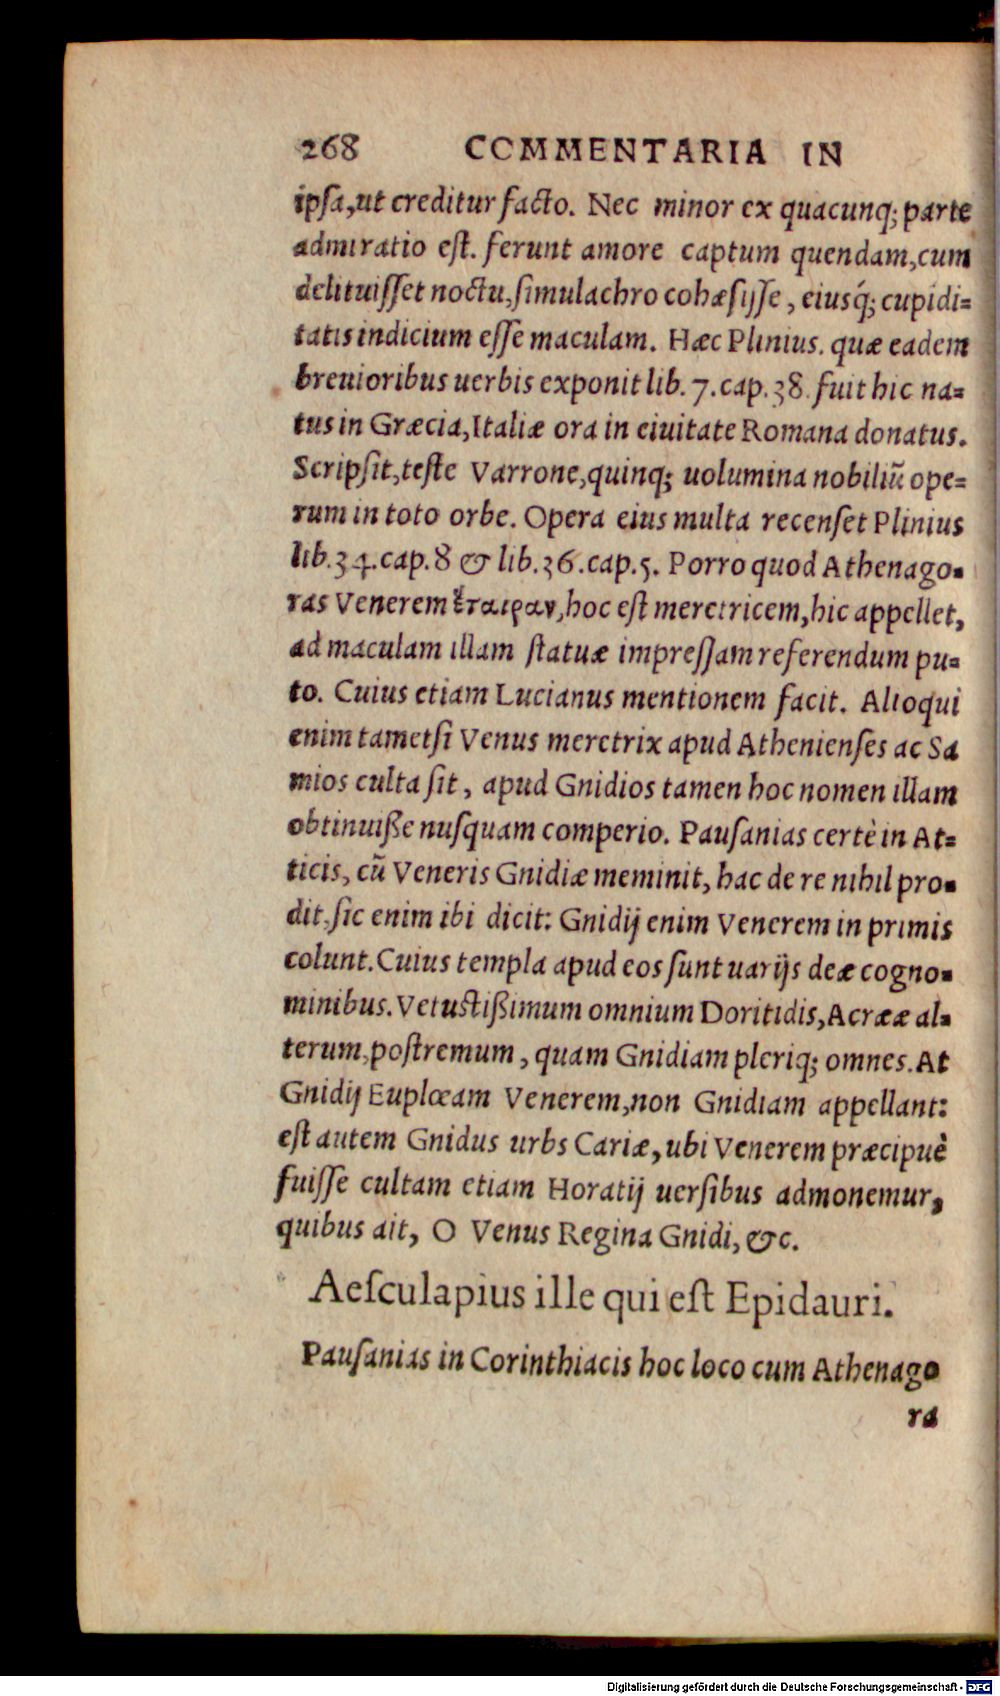 268 COMMENTARIA IN
ipſa,ut creditur facto. Nec minor ex quacunq; parte
admiratio eſt. ferunt amore captum quendam,cum
delituiſſet noctu,ſimulachro cohæſiſſe, eiusq́; cupidi-
tatis indicium eſſe maculam. Hæc Plinius. quæ eadem
breuioribus uerbis exponit lib. 7. cap. 38. fuit hic na-
tus in Græcia,Italiæ ora in ciuitate Romana donatus.
Scripſit,teſte Varrone,quinq; uolumina nobiliũ ope-
rum in toto orbe. Opera eius multa recenſet Plinius
lib.34.cap.8 & lib.36.cap.5. Porro quod Athenago-
ras Venerem ἑταιραν,hoc eſt meretricem,hic appellet,
ad maculam illam ſtatuæ impreſſam referendum pu-
to. Cuius etiam Lucianus mentionem facit. Alioqui
enim tametſi Venus meretrix apud Athenienſes ac Sa
mios culta ſit, apud Gnidios tamen hoc nomen illam
obtinuiße nuſquam comperio. Pauſanias certè in At-
ticis, cũ Veneris Gnidiæ meminit, hac de re nihil pro-
dit,ſic enim ibi dicit: Gnidij enim Venerem in primis
colunt. Cuius templa apud eos ſunt uarijs deæ cogno-
minibus. Vetuſtißimum omnium Doritidis, Acrææ al-
terum,poſtremum, quam Gnidiam pleriq; omnes. At
Gnidij Euplœam Venerem,non Gnidiam appellant:
eſt autem Gnidus urbs Cariæ, ubi Venerem præcipuè
fuiſſe cultam etiam Horatij uerſibus admonemur,
quibus ait, O Venus Regina Gnidi, &c.
Aeſculapius ille qui eſt Epidauri.
Pauſanias in Corinthiacis hoc loco cum Athenago
ra
Digitalisierung gefördert durch die Deutsche Forschungsgemeinschaft - DFG